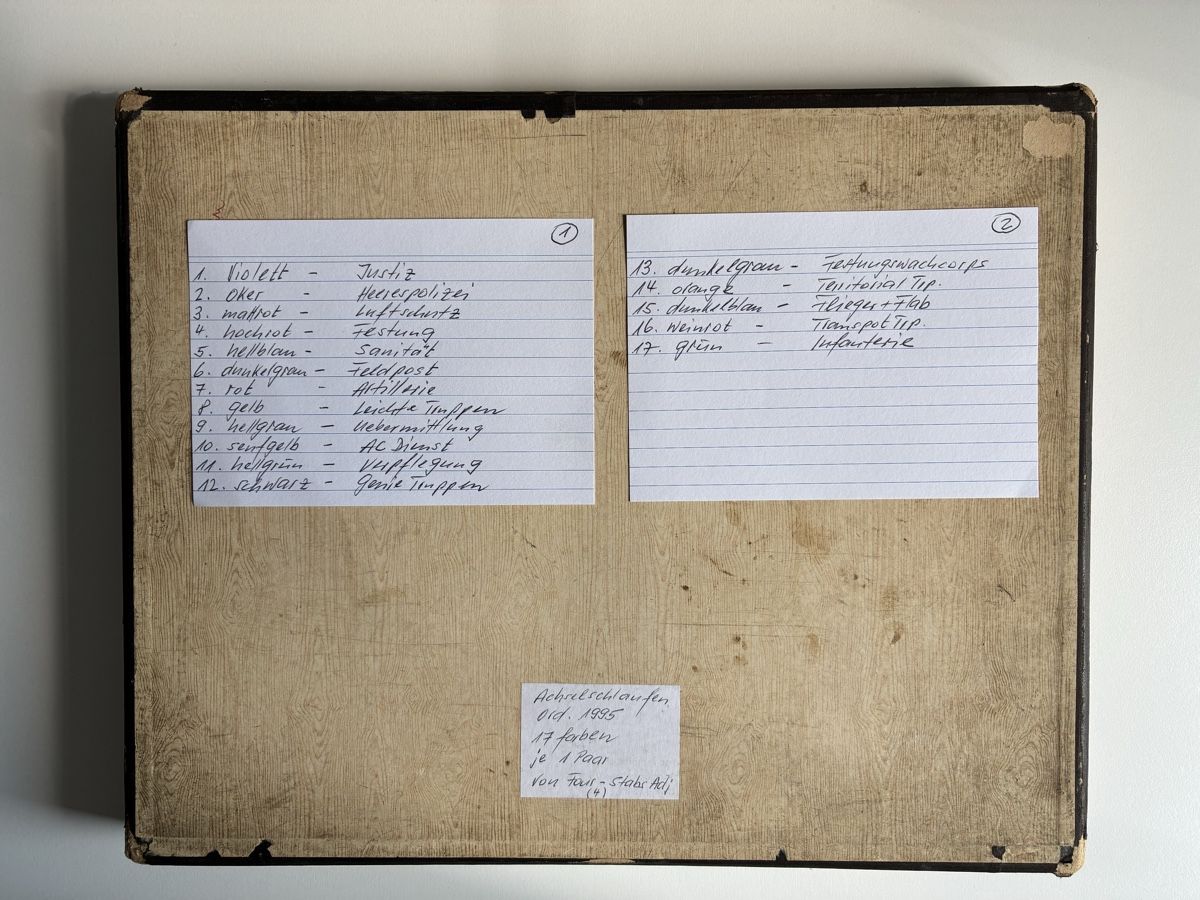 1
1. Violett - Justiz
2. oker - Heerespolizei
3. mattrot - Luftschutz
4. hochrot - Festung
5. hellblau - Sanität
6. dunkelgrau - Feldpost
7. rot - Artillerie
8. gelb - Leichte Truppen
9. hellgrau - Uebermittlung
10. senfgelb - AC Dienst
11. hellgrün - Verpflegung
12. schwarz - Genie Truppen
2
13. dunkelgrau - Festungswachcorps
14. orange - Territorial Trp.
15. dunkelblau - Flieger + Flab
16. weinrot - Transpot Trp.
17. grün - Infanterie
Achselschlaufen
Ord. 1995
17 farben
je 1 Paar
von Four - Stabs Adj
(4)